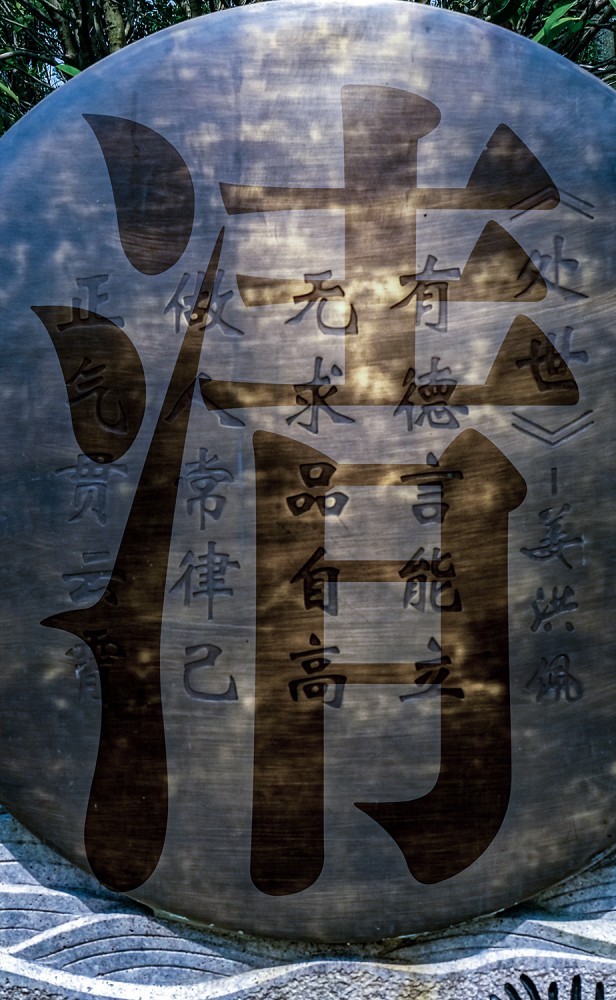 清
《处世》—姜洪佩
有德言能立
无求品自高
做人常律己
正气贯云霄